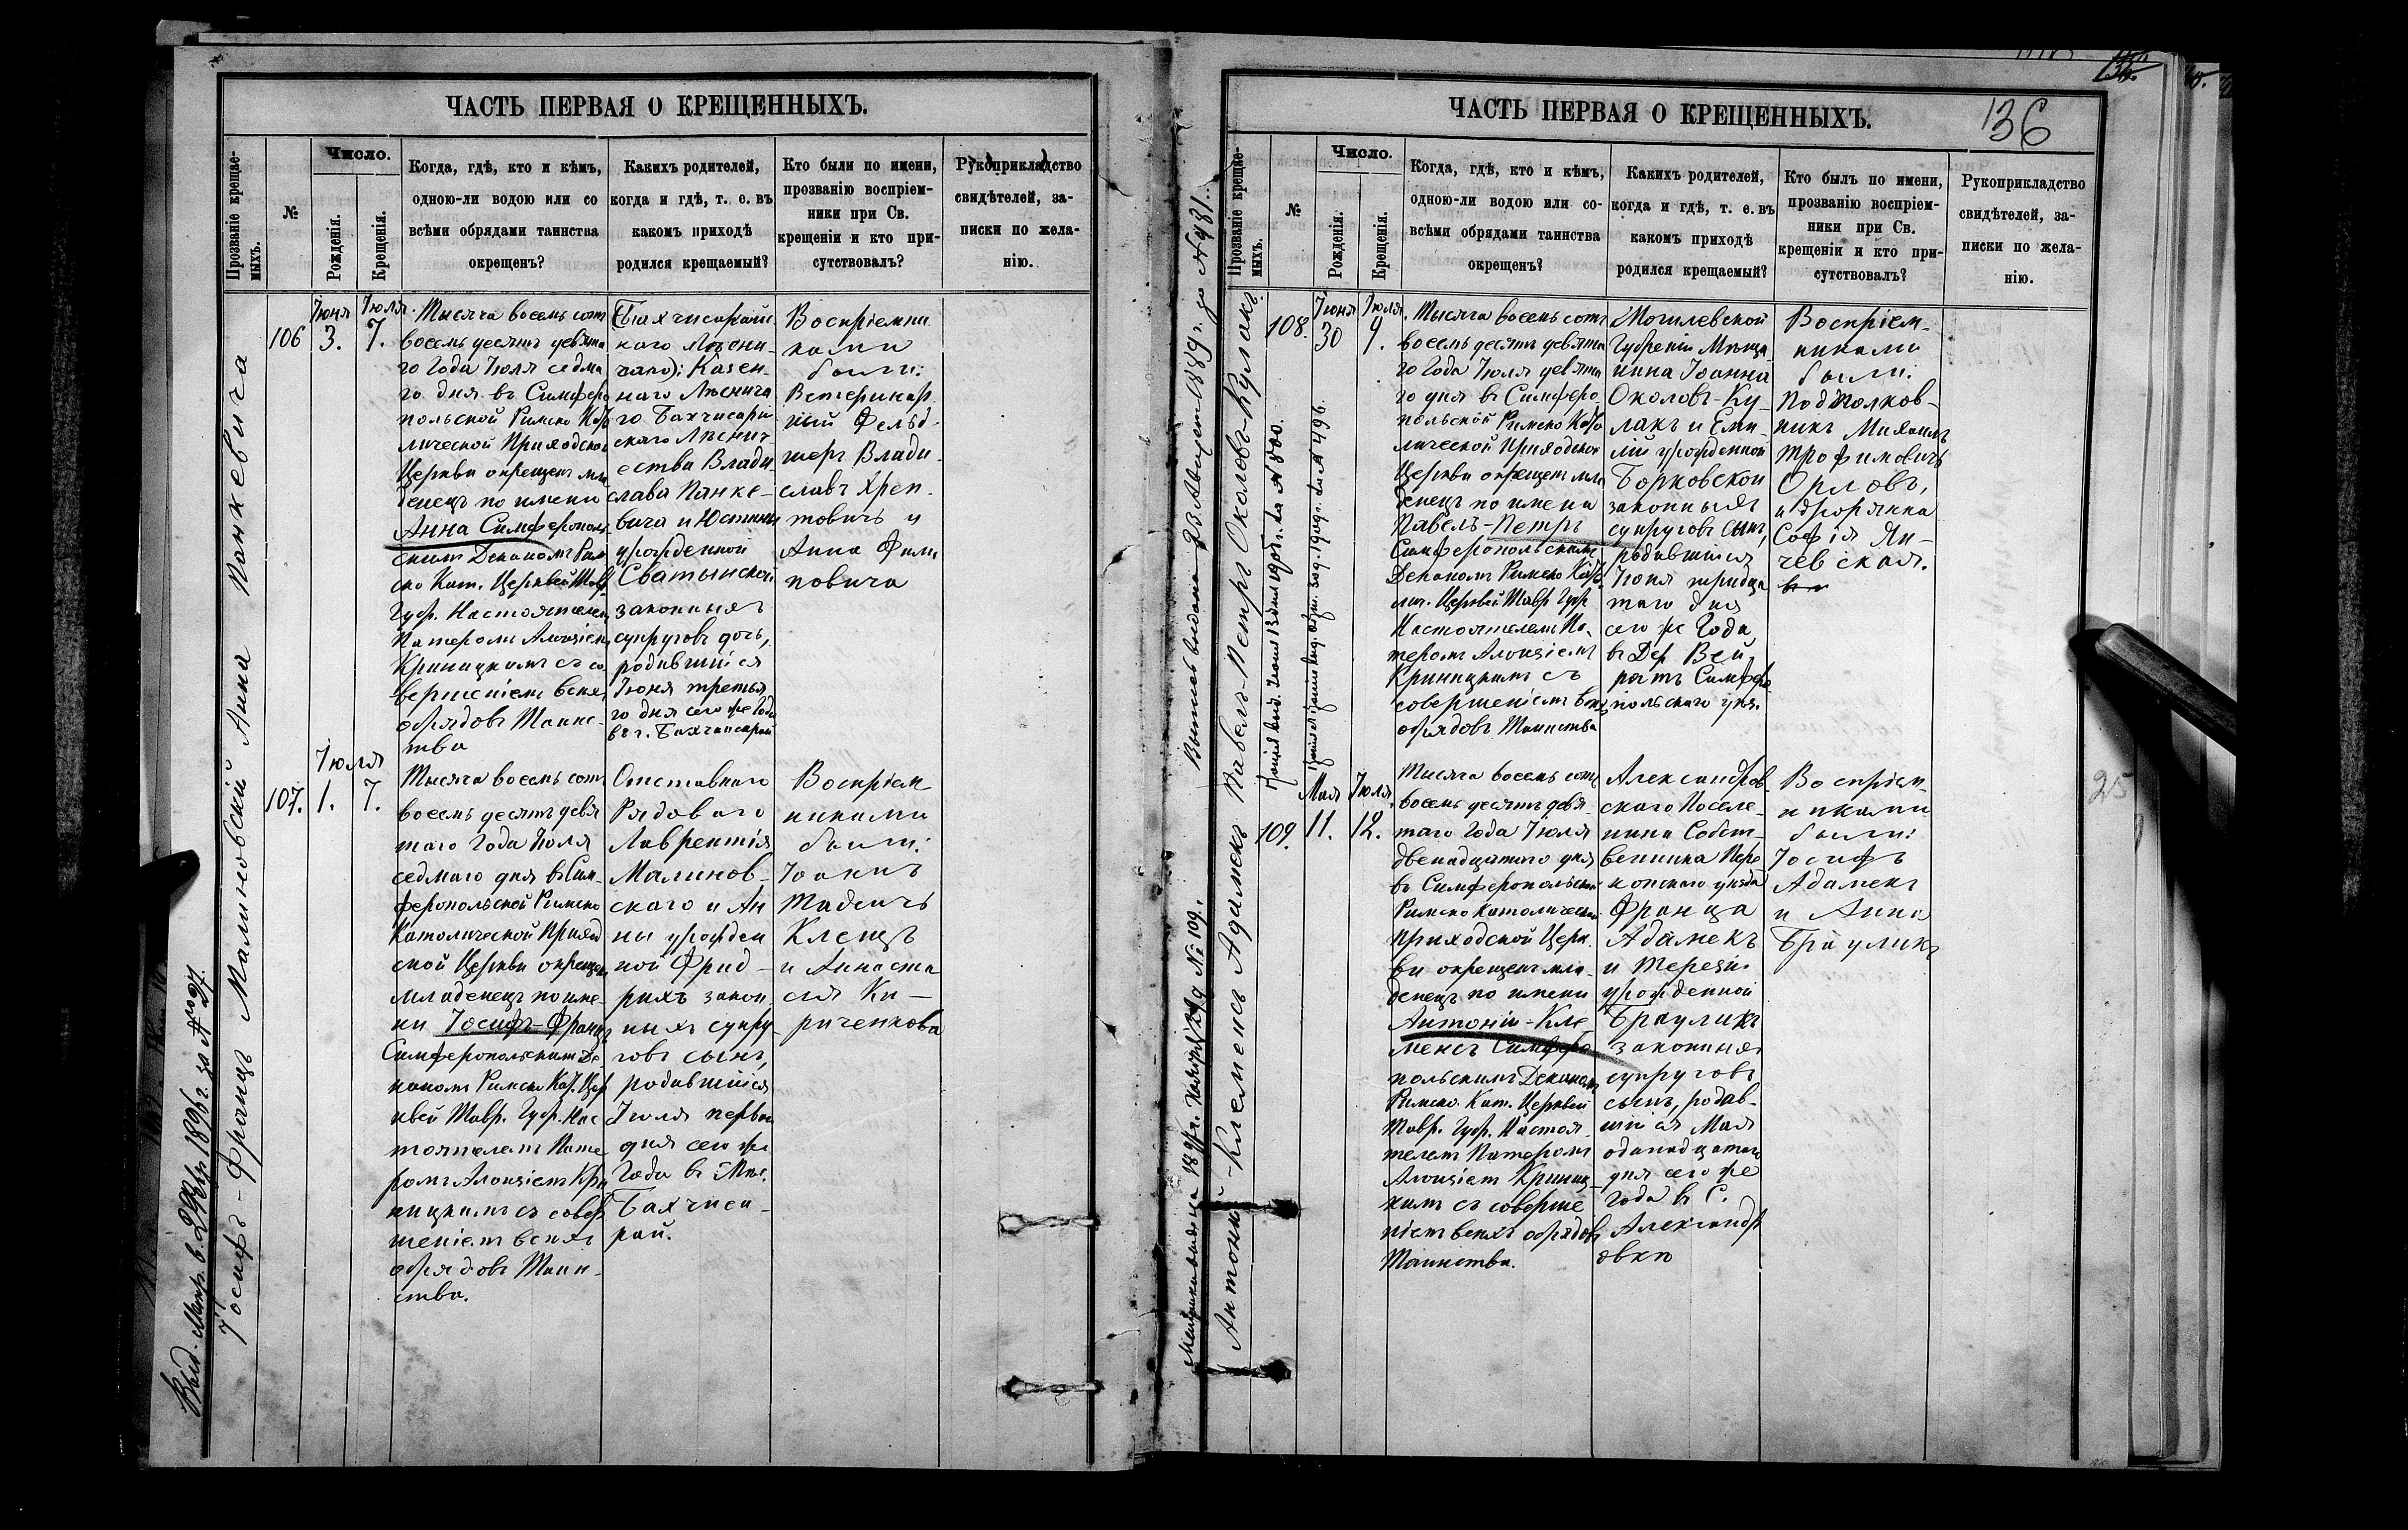 ЧАСТЬ ПЕРВАЯ О КРЕЩЕННЫХЪ.
Прозваніе крещае-
мыхъ.
№
Число.
Рожденія.
Крещенія.
Когда, гдѣ, кто и кѣмъ,
одною-ли водою или со
всѣми обрядами таинства
окрещенъ?
Какихъ родителей,
когда и гдѣ, т. е. въ
какомъ приходѣ
родился крещаемый?
Кто были по имени,
прозванію воспріем-
ники при Св.
крещеніи и кто при-
сутствовалъ?
Рукоприкладство
свидѣтелей, за-
писки по жела-
нію.
Анна Панкевича
106
Іюня
3.
Іюля
7.
Тысяча восемь сотъ
восемьдесятъ девята
го Года Іюля седма
го дня въ Симферо
польской Римско Като
лической Приходской
Церкви окрещенъ мла
денецъ по имени
Анна Симферополь
скимъ Деканомъ Рим
ско Кат. Церквей Тавр
Губ. Настоятелемъ
Патеромъ Алоизіемъ
Криницкимъ съ со
вершеніемъ всѣхъ
обрядовъ Таинс-
тва
каго
Казен-
наго Лѣснича
го Бахчисарай
скаго Лѣснич
ества Влади
слава Панке-
вича и Юстины
урожденной
Сватынской
законныхъ
супруговъ дочь,
родившійся
Іюня третья
го дня сего же Года
въ г. Бахчисарай
Воспріемни
ками
были:
Ветеринар
ный Фельд-
шеръ Влади-
славъ Хреп-
товичъ и
Анна Фили
повича
Іосифъ-Францъ Малиновскій
107.
Іюля
1.
7.
Тысяча восемь сотъ
восемь десятъ девя
таго Года Іюля
седмаго дня въ Сим-
феропольской Римско
Католической Приход
ской Церкви окрещен
младенецъ по име-
ни Іосифъ-Францъ
Симферопольскимъ Де
каномъ Римско Кат. Цер
квей Тавр. Губ. Нас
тоятелемъ Пате
ромъ Алоизіемъ Кри
ницкимъ съ совер
шеніемъ всѣхъ
обрядовъ Таин-
ства.
Отставного
Рядового
Лаврентія
Малинов-
скаго и Ан
ны урожден
ной Фрид-
рихъ закон
ныхъ супру
говъ сынъ,
родившійся
Іюля перва
дня сего же
Года въ Мѣс.
Бахчиса-
рай.
Воспріем
никами
были:
Іоаннъ
Тадеичъ
Клепцъ
и Анаста
сія Ки-
риченкова
ЧАСТЬ ПЕРВАЯ О КРЕЩЕННЫХЪ.
136
Прозваніе крещае-
мыхъ.
№
Число.
Рожденія.
Крещенія.
Когда, гдѣ, кто и кѣмъ,
одною-ли водою или со-
всѣми обрядами таинства
окрещенъ?
Какихъ родителей,
когда и гдѣ, т. е. въ
какомъ приходѣ
родился крещаемый?
Кто былъ по имени,
прозванію воспріем-
ники при Св.
крещеніи и кто при-
сутствовалъ?
Рукоприкладство
свидѣтелей, за-
писки по жела-
нію.
Павелъ-Петръ Околовъ-Кулакъ
108.
Іюня
30
Іюля
9.
Тысяча восемь сотъ
восемь десятъ девята
го Года Іюля девята
го дня въ Симферо-
польской Римско Като
лической Приходской
Церкви окрещенъ мла
денецъ по имени
Павелъ-Петръ
Симферопольскимъ
Деканомъ Римско Като
лич. Церквей Тавр Губ
Настоятелемъ Па-
теромъ Алоизіемъ
Криницкимъ съ
совершеніемъ всѣхъ
обрядовъ Таинства
Могилевской
Губерніи Мѣща
нина Іоанна
Околовъ-Ку-
лакъ и Еми-
ліи урожденной
Борковской
законныхъ
супруговъ сынъ,
родившійся
Іюня тридца
таго дня
сего же Года
въ Дер
Симферо
польскаго уѣз.
Воспріем-
никами
были:
Подполков-
никъ Михаилъ
Трофимовичъ
Орловъ,
и дворянка
Софія Ян-
чевская.
Антоній-Клеменсъ Адамекъ
109.
Мая
11.
Іюля
12.
Тысяча восемь сотъ
восемь десятъ девя-
таго Года Іюля
двенадцатаго дня
въ Симферопольской
Римско Католической
Приходской Церк-
ви окрещенъ мла-
денецъ по имени
Антоній-Кле-
менсъ Симферо
польскимъ Деканомъ
Римско. Кат. Церквей
Тавр. Губ. Настоя-
телемъ Патеромъ
Алоизіемъ Криниц-
кимъ съ соверше
ніемъ всѣхъ обрядовъ
Таинства.
Александров-
скаго Поселя
нина Собст-
венника Пере
копскаго уѣзда
Франца
Адамекъ
и Терезіи
урожденной
Брауликъ
законныхъ
супруговъ
сынъ, родив-
шійся Мая
одинадцатаго
дня сего же
года въ С.
Александр
овкѣ
Воспріем-
никами
были:
Іосифъ
Адамекъ
и Анна
Брауликъ
25